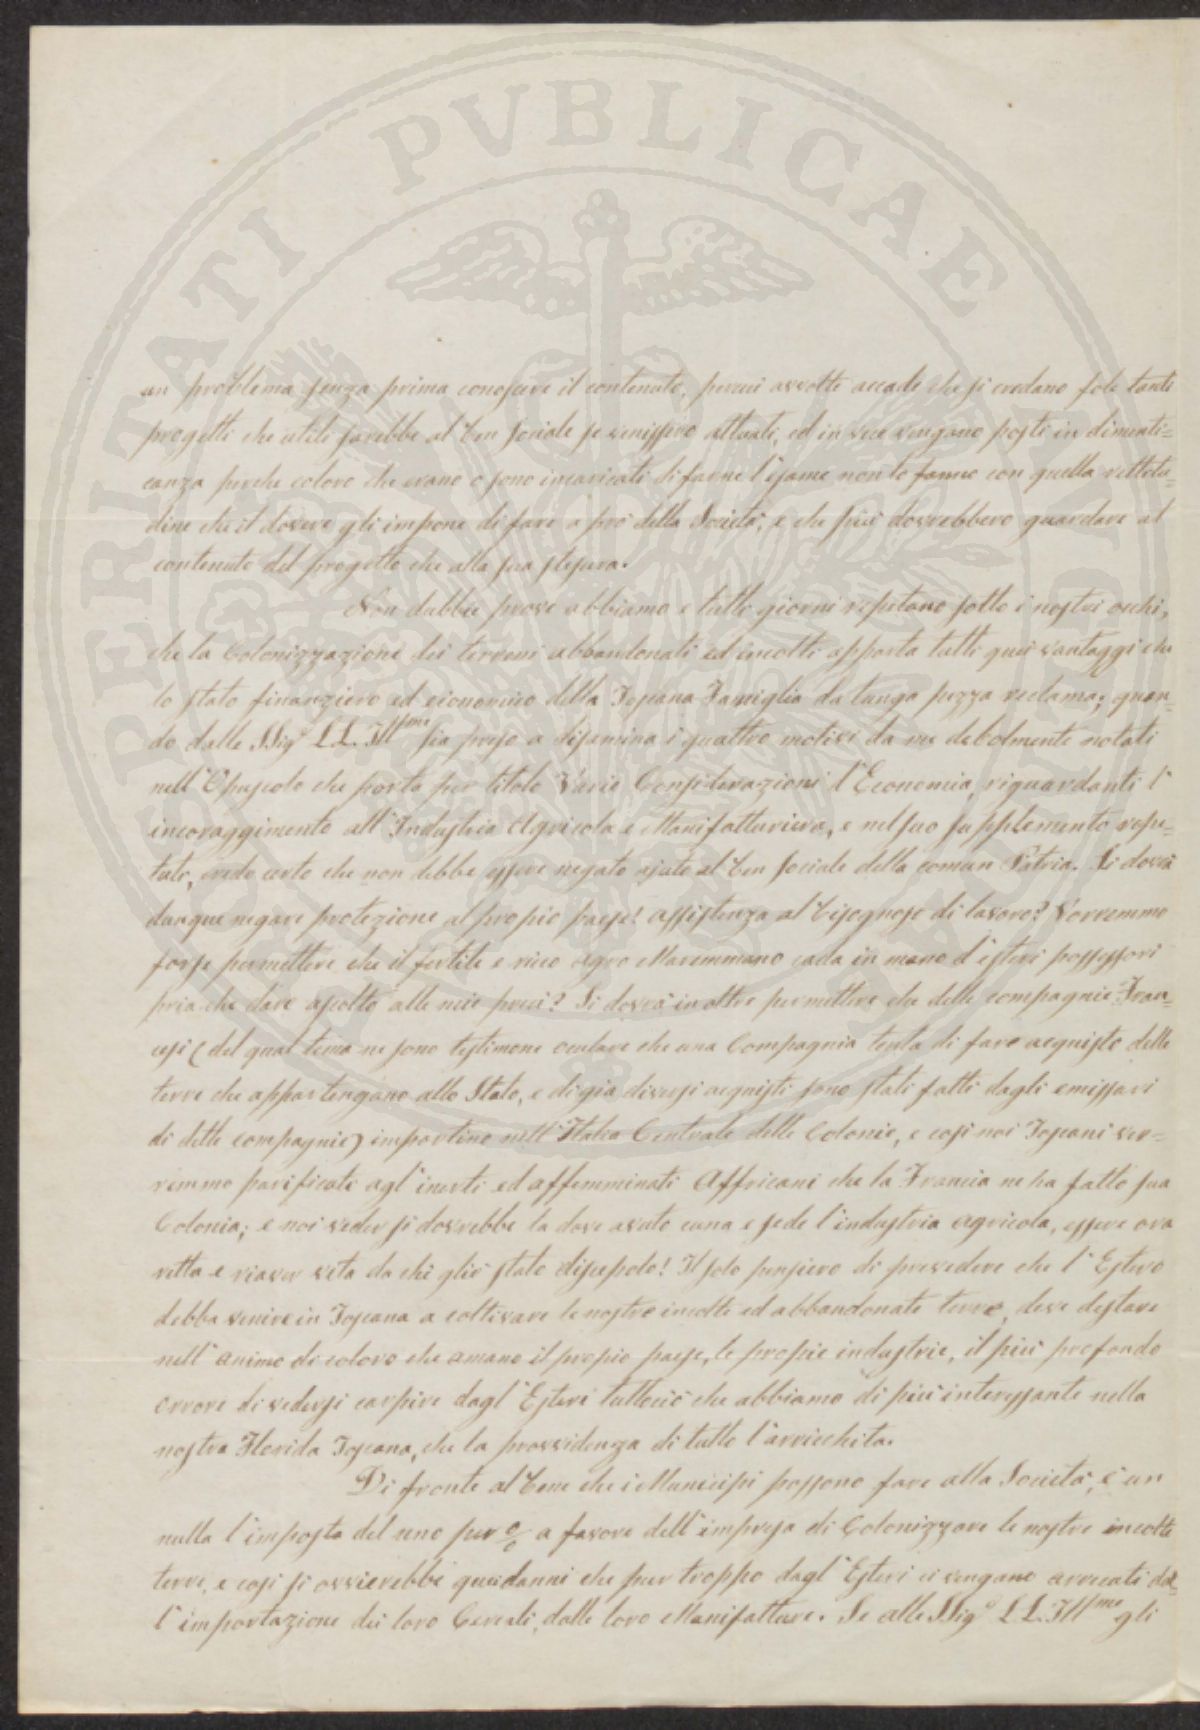 PROSPERITATI PVBLICAE AVGENDAE
un problema senza prima conoscere il contenuto, perciò avvolte accade che si credano fole tanti
progetti che utili sarebbe al ben sociale se venissero attuati, ed in vece vengano posti in dimenti=
canza perche coloro che erano o sono incaricati di farne l'esame non lo fanno con quella rettitu=
dine che il dovere gli impone di fare a pro della Società, e che più dovrebbero guardare al
contenuto del progetto che alla sua stesura.
Non dubbie prove abbiamo e tutto giorni repetano sotto i nostri occhi,
che la Colonizzazione dei terreni abbandonati ed incolti apporta tutti quei vantaggi che
lo stato finanziero ed economico della Toscana Famiglia da lunga pezza reclama; quan=
do dalle SSig.e LL. Ill.me sia preso a disamina i quattro motivi da me debolmente notati
nell'Opuscolo che porta per titolo Varie Considerazioni d'Economia, riguardanti l'
incoraggimento all'Industria Agricola e Manifatturiera, e nel suo supplemento repe=
tuto, credo certo che non debba essere negato ajuto al ben sociale della comun Patria. Si dovrà
dunque negare protezione al propio paese! assistenza al bisognoso di lavoro? Vorremmo
forse permettere che il fertile e ricco Agro Maremmano cada in mano d'esteri possessori
pria che dare ascolto alle mie preci? Si dovrà inoltre permettere che delle compagnie Fran=
cesi (del qual tema ne sono testimone oculare che una Compagnia tenta di fare acquisto delle
terre che appartengano allo Stato, e di gia diversi acquisti sono stati fatti dagli emissari
di dette compagnie) impartino nell'Italia Centrale delle Colonie, e così noi Toscani ver=
remmo parificati agl'inerti ed affemminati Affricani che la Francia ne ha fatto sua
Colonia; e noi veder si dovrebbe la dove avuto cuna e sede l'industria agricola, essere ora
retta e riaver vita da chi gliè stato discepolo! Il solo pensiero di prevedere che l'Estero
debba venire in Toscana a coltivare le nostre incolte ed abbandonate terre, deve destare
nell'animo di coloro che amano il propio paese, le propie industrie, il più profondo
orrore di vedersi carpire dagl'Esteri tuttociò che abbiamo di più interessante nella
nostra Florida Toscana, che la provvidenza di tutto l'arricchita.
Di fronte al bene che i Municipi possono fare alla Società, è un
nulla l'imposta del uno per o/o a favore dell'impresa di Colonizzare le nostre incolte
terre, e così si ovvierebbe quei danni che pur troppo dagl'Esteri ci vengano arrecati dal=
l'importazione dei loro Cereali, dalle loro Manifatture. Se alle SSig.e LL. Ill.me gli